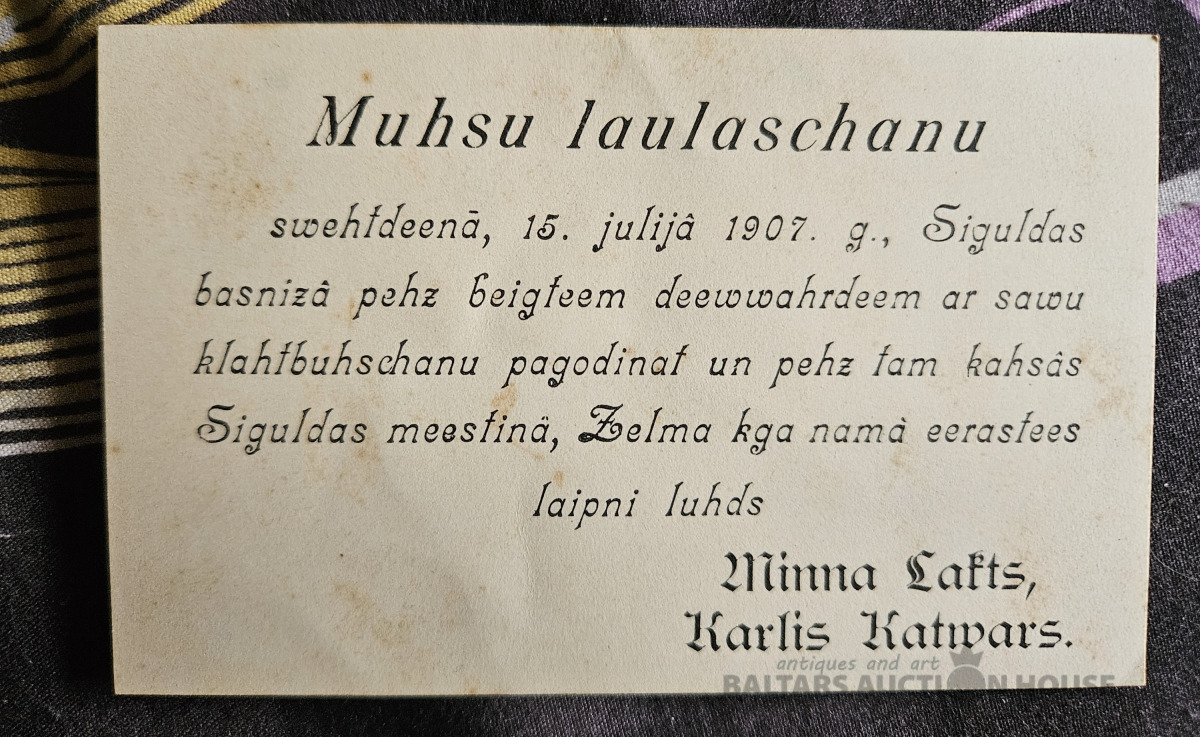 Muhsu laulaschanu
swehtdeenâ, 15. julijâ 1907. g., Siguldas
basnizâ pehz beigteem deewwahrdeem ar sawu
klahtbuhschanu pagodinat un pehz tam kahsâs
Siguldas meestinâ, Zelma kga namâ eerastees
laipni luhds
Minna Lakts,
Karlis Katwars.
antiques and art
BALTARS AUCTION HOUSE